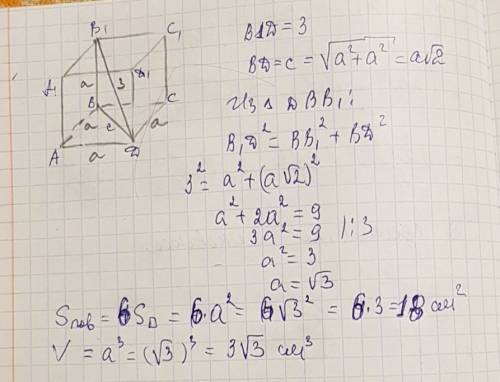 B₁ C₁
A₁ a 3 D₁
a B C
c a
A a D
B1D = 3
BD = c = √(a² + a²) = a√2
Из △ DBB₁:
B₁D² = BB₁² + BD²
3² = a² + (a√2)²
a² + 2a² = 9
3a² = 9 |:3
a² = 3
a = √3
Sпов = 6S□ = 6·a² = 6√3² = 6·3 = 18 см²
V = a³ = (√3)³ = 3√3 см³